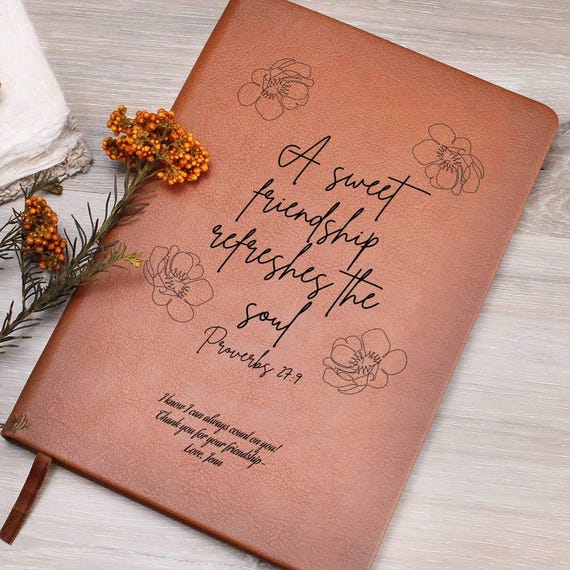 A sweet
friendship
refreshes the
soul
Proverbs 27:9
I know I can always count on you!
Thank you for your friendship~
Love, Jenn